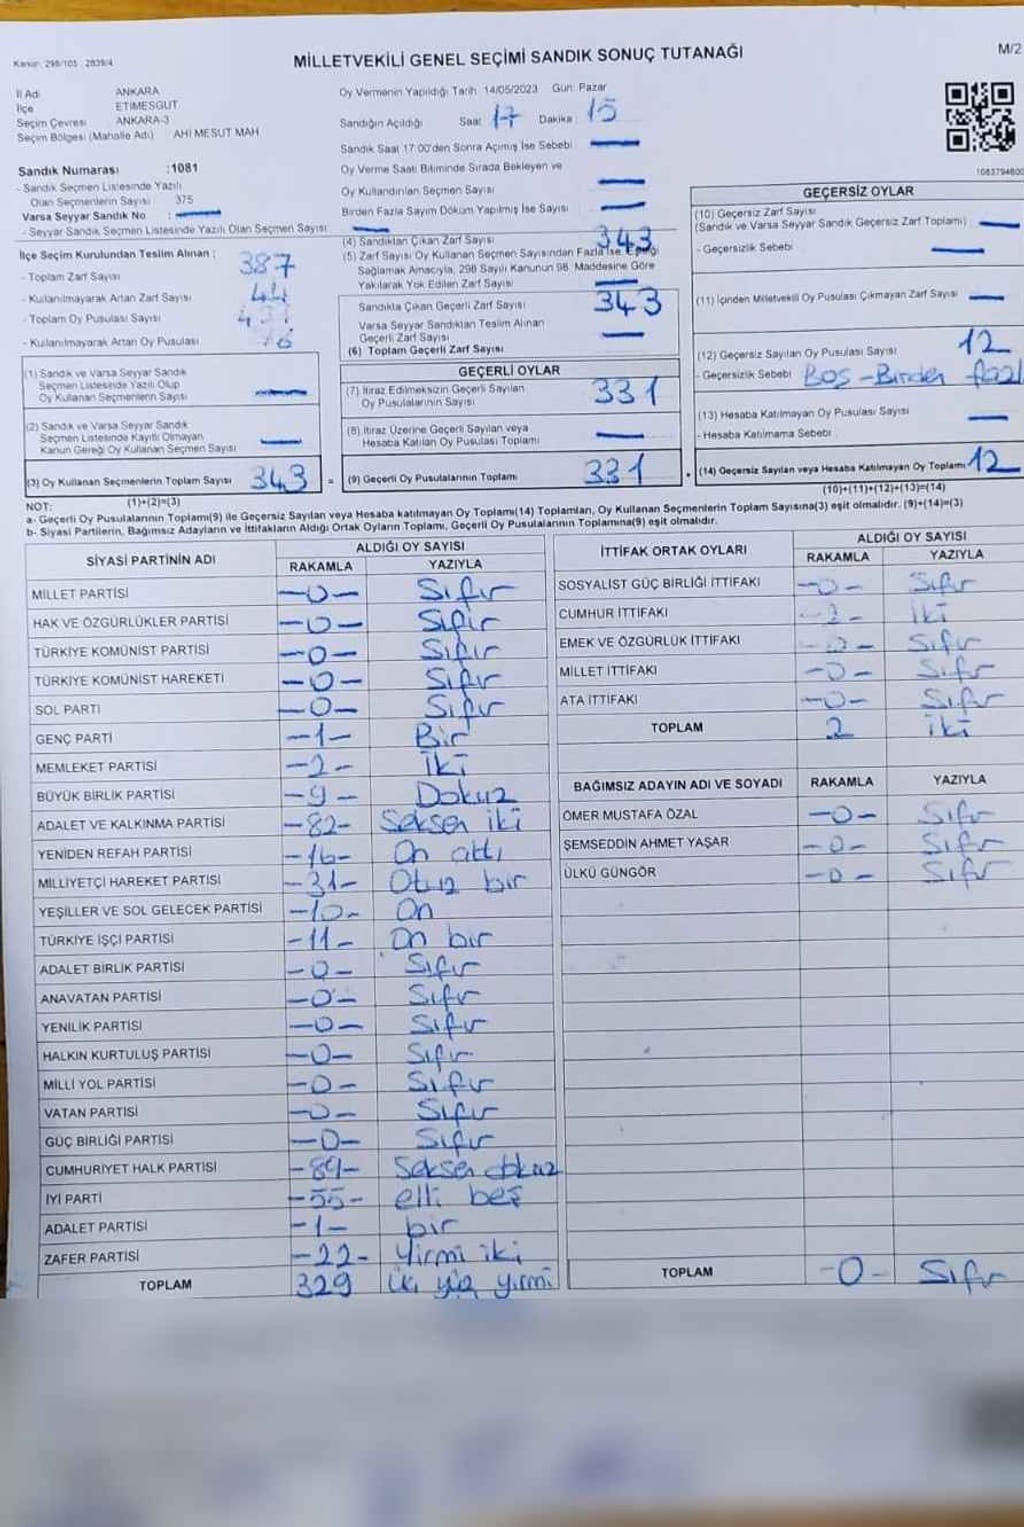 Kanun: 298/105 : 2839/4
MİLLETVEKİLİ GENEL SEÇİMİ SANDIK SONUÇ TUTANAĞI
M/2
İl Adı ANKARA
İlçe ETİMESGUT
Seçim Çevresi ANKARA-3
Seçim Bölgesi (Mahalle Adı) AHİ MESUT MAH
Sandık Numarası :1081
- Sandık Seçmen Listesinde Yazılı
Olan Seçmenlerin Sayısı 375
Varsa Seyyar Sandık No : —
- Seyyar Sandık Seçmen Listesinde Yazılı Olan Seçmen Sayısı —
Oy Vermenin Yapıldığı Tarih: 14/05/2023 Gün: Pazar
Sandığın Açıldığı Saat 17 Dakika 15
Sandık Saat 17:00'den Sonra Açımış İse Sebebi —
Oy Verme Saati Bitiminde Sırada Bekleyen ve
Oy Kullandırılan Seçmen Sayısı —
Birden Fazla Sayım Döküm Yapılmış İse Sayısı —
İlçe Seçim Kurulundan Teslim Alınan :
- Toplam Zarf Sayısı 387
- Kullanılmayarak Artan Zarf Sayısı 44
- Toplam Oy Pusulası Sayısı
- Kullanılmayarak Artan Oy Pusulası
(1) Sandık ve Varsa Seyyar Sandık
Seçmen Listesinde Yazılı Olup
Oy Kullanan Seçmenlerin Sayısı —
(2) Sandık ve Varsa Seyyar Sandık
Seçmen Listesinde Kayıtlı Olmayan
Kanun Gereği Oy Kullanan Seçmen Sayısı —
(3) Oy Kullanan Seçmenlerin Toplam Sayısı 343
(1)+(2)=(3)
(4) Sandıktan Çıkan Zarf Sayısı 343
(5) Zarf Sayısı Oy Kullanan Seçmen Sayısından Fazla İse, Eşitliği
Sağlamak Amacıyla, 298 Sayılı Kanunun 98. Maddesine Göre
Yakılarak Yok Edilen Zarf Sayısı —
Sandıkta Çıkan Geçerli Zarf Sayısı 343
Varsa Seyyar Sandıktan Teslim Alınan
Geçerli Zarf Sayısı —
(6) Toplam Geçerli Zarf Sayısı
GEÇERLİ OYLAR
(7) İtiraz Edilmeksizin Geçerli Sayılan
Oy Pusulalarının Sayısı 331
(8) İtiraz Üzerine Geçerli Sayılan veya
Hesaba Katılan Oy Pusulası Toplamı —
= (9) Geçerli Oy Pusulalarının Toplamı 331
GEÇERSİZ OYLAR
(10) Geçersiz Zarf Sayısı
(Sandık ve Varsa Seyyar Sandık Geçersiz Zarf Toplamı) —
- Geçersizlik Sebebi —
(11) İçinden Milletvekili Oy Pusulası Çıkmayan Zarf Sayısı —
(12) Geçersiz Sayılan Oy Pusulası Sayısı 12
- Geçersizlik Sebebi BOŞ-Birden fazl
(13) Hesaba Katılmayan Oy Pusulası Sayısı —
- Hesaba Katılmama Sebebi
(14) Geçersiz Sayılan veya Hesaba Katılmayan Oy Toplamı 12
(10)+(11)+(12)+(13)=(14)
NOT:
a- Geçerli Oy Pusulalarının Toplamı(9) ile Geçersiz Sayılan veya Hesaba katılmayan Oy Toplamı(14) Toplamları, Oy Kullanan Seçmenlerin Toplam Sayısına(3) eşit olmalıdır. (9)+(14)=(3)
b- Siyasi Partilerin, Bağımsız Adayların ve İttifakların Aldığı Ortak Oyların Toplamı, Geçerli Oy Pusulalarının Toplamına(9) eşit olmalıdır.
SİYASİ PARTİNİN ADI ALDIĞI OY SAYISI
RAKAMLA YAZIYLA
MİLLET PARTİSİ —0— Sıfır
HAK VE ÖZGÜRLÜKLER PARTİSİ —0— Sıfır
TÜRKİYE KOMÜNİST PARTİSİ —0— Sıfır
TÜRKİYE KOMÜNİST HAREKETİ —0— Sıfır
SOL PARTİ —0— Sıfır
GENÇ PARTİ —1— Bir
MEMLEKET PARTİSİ —2— İki
BÜYÜK BİRLİK PARTİSİ —9— Dokuz
ADALET VE KALKINMA PARTİSİ —82— Seksen iki
YENİDEN REFAH PARTİSİ —16— On altı
MİLLİYETÇİ HAREKET PARTİSİ —31— Otuz bir
YEŞİLLER VE SOL GELECEK PARTİSİ —10— On
TÜRKİYE İŞÇİ PARTİSİ —11— On bir
ADALET BİRLİK PARTİSİ —0— Sıfır
ANAVATAN PARTİSİ —0— Sıfır
YENİLİK PARTİSİ —0— Sıfır
HALKIN KURTULUŞ PARTİSİ —0— Sıfır
MİLLİ YOL PARTİSİ —0— Sıfır
VATAN PARTİSİ —0— Sıfır
GÜÇ BİRLİĞİ PARTİSİ —0— Sıfır
CUMHURİYET HALK PARTİSİ —89— Seksen dokuz
İYİ PARTİ —55— elli beş
ADALET PARTİSİ —1— bir
ZAFER PARTİSİ —22— Yirmi iki
TOPLAM 329 üç yüz yirmi
İTTİFAK ORTAK OYLARI ALDIĞI OY SAYISI
RAKAMLA YAZIYLA
SOSYALİST GÜÇ BİRLİĞİ İTTİFAKI —0— Sıfır
CUMHUR İTTİFAKI —2— İki
EMEK VE ÖZGÜRLÜK İTTİFAKI —0— Sıfır
MİLLET İTTİFAKI —0— Sıfır
ATA İTTİFAKI —0— Sıfır
TOPLAM 2 İki
BAĞIMSIZ ADAYIN ADI VE SOYADI RAKAMLA YAZIYLA
ÖMER MUSTAFA ÖZAL —0— Sıfır
ŞEMSEDDİN AHMET YAŞAR —0— Sıfır
ÜLKÜ GÜNGÖR —0— Sıfır
TOPLAM —0— Sıfır